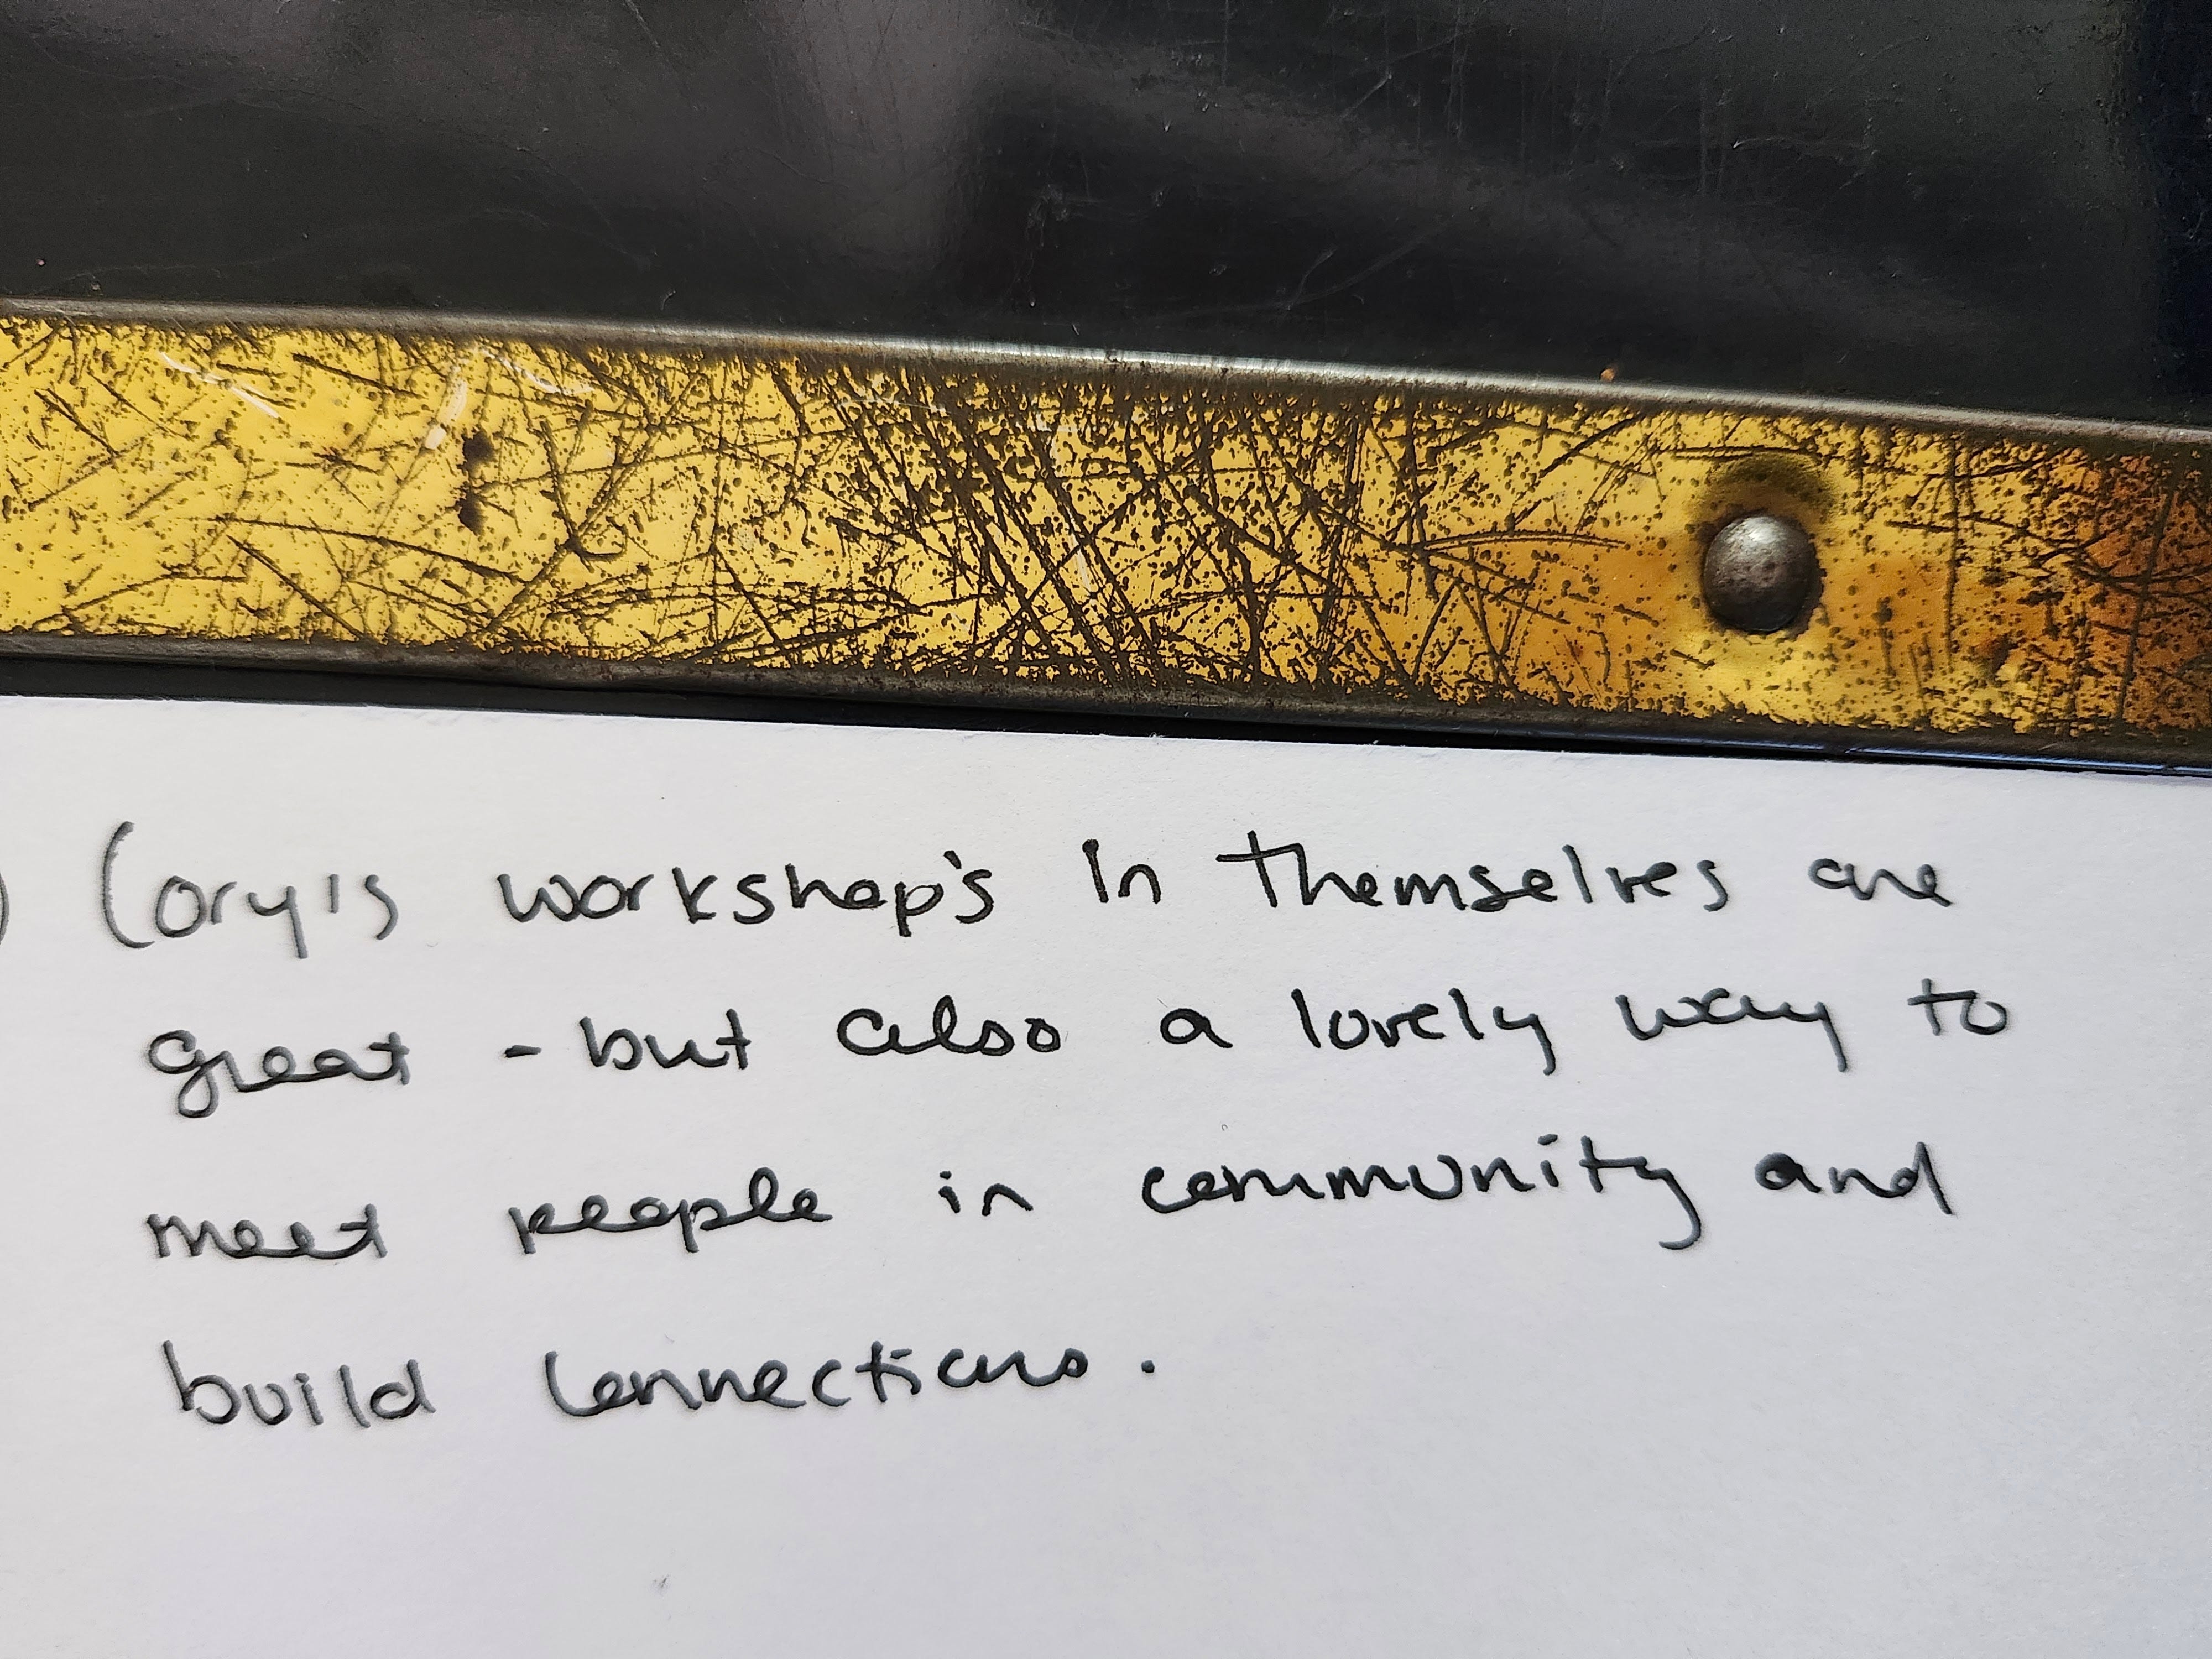 ) Cory's workshop's in themselves are
great - but also a lovely way to
meet people in community and
build connections.